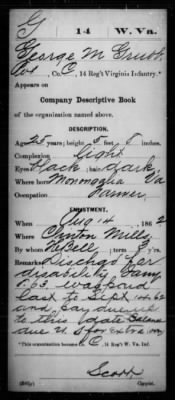 G 14 W. Va.
George M Grubb
Co. C, 14 Reg't Virginia Infantry.*
Appears on
Company Descriptive Book
of the organization named above.
DESCRIPTION.
Age 25 years; height 5 feet 8 inches.
Complexion light
Eyes black; hair dark
Where born Monongalia Va
Occupation Farmer
ENLISTMENT.
When Aug 14, 1862
Where Clinton Mills
By whom Bell; term 3 y'rs.
Remarks: Dischgd for
disability
63. was paid
last to Sept 14 62
and pay due
to this date
due U.S. for
*This organization became Co. C, 14 Reg't W. Va. Inf.
Scott
Copyist.